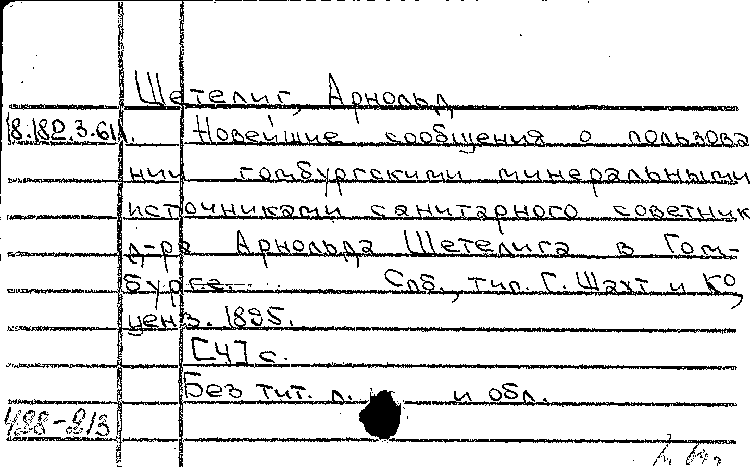 Шетелиг, Арнольд
18.182.3.61. Новейшие сообщения о пользова
нии гомбургскими минеральными
источниками санитарного советник
д-ра Арнольда Шетелига в Гом-
бурге. Спб., тип. Г. Шахт и Ко,
ценз. 1895.
[4] с.
Без тит. л. и обл.
428-213